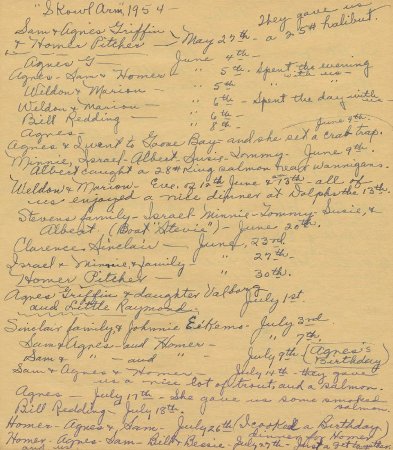 "Skowl Arm" 1954 -
They gave us
Sam & Agnes Griffin
& Homer Pitcher - May 27th - a 25# halibut.
Agnes G - June 4th -
Agnes - Sam & Homer - " 5th. Spent the evening with us -
Weldon & Marion - " 5th "
Weldon & Marion - " 6th - Spent the day with us -
Bill Redding - " 6th -
Agnes - " 8th -
Agnes & I went to Goose Bay - and she set a crab trap. June 9th.
Minnie, Israel - Albert, Susie - Tommy - June 9th.
Albert caught a 28# King salmon near Wannigans.
Weldon & Marion - Eve. of 12th June & 13th - all of
us enjoyed a nice dinner at Dolphs the 13th.
Stevens family - Israel Minnie - Tommy - Susie, &
Albert, (Boat "Stevie") - June 20th.
Clarence Sinclair - June, 23rd.
Israel & Minnie, & family - " 27th.
Homer Pitcher - " 30th.
Agnes Griffin & daughter Valborg
and Little Raymond - July 1st.
Sinclair family & Johnnie - July 3rd.
Sam & Agnes - and Homer - " 7th.
Sam & " - and " - July 9th (Agnes's Birthday)
Sam & Agnes & Homer - July 14th - they gave
us a nice lot of trout, and a salmon.
Agnes - July 17th - She gave us some smoked salmon.
Bill Redding - July 18th.
Homer - Agnes & Sam - July 26th (I cooked a Birthday
dinner for Homer)
Homer - Agnes - Sam - Bill & Bessie - July 27th - Just a get together